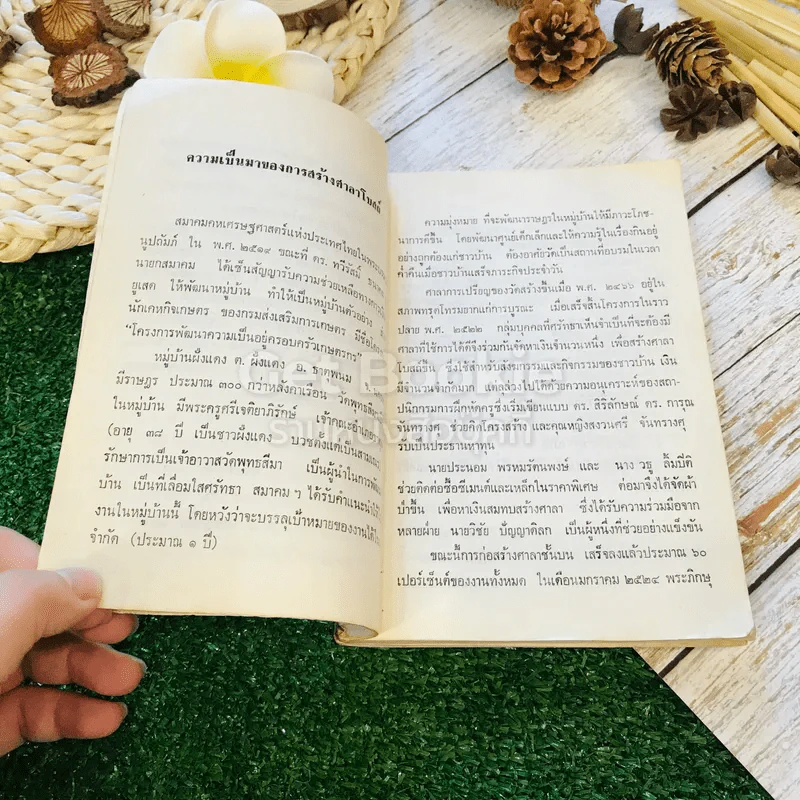 ความเป็นมาของการสร้างศาลาโบสถ์
สมาคมคหเศรษฐศาสตร์แห่งประเทศไทยในพระบรม
นูปถัมภ์ ใน พ.ศ. ๒๕๑๙ ขณะที่ ดร. ทวีรัสมิ์
นายกสมาคม ได้เซ็นสัญญารับความช่วยเหลือทางการเงิน
ยูเสด ให้พัฒนาหมู่บ้าน ทำให้เป็นหมู่บ้านตัวอย่าง
นักเคหกิจเกษตร ของกรมส่งเสริมการเกษตร มีชื่อ
"โครงการพัฒนาความเป็นอยู่ครอบครัวเกษตรกร"
หมู่บ้านฝั่งแดง ต. ฝั่งแดง อ. ธาตุพนม
มีราษฎร ประมาณ ๓๐๐ กว่าหลังคาเรือน วัดพุทธสีมา
ในหมู่บ้าน มีพระครูศรีเจติยาภิรักษ์ เจ้าคณะอำเภอ
(อายุ ๓๘ ปี เป็นชาวฝั่งแดง บวชตั้งแต่เป็นสามเณร)
รักษาการเป็นเจ้าอาวาสวัดพุทธสีมา เป็นผู้นำในการพัฒนา
บ้าน เป็นที่เลื่อมใสศรัทธา สมาคมฯ ได้รับคำแนะนำให้
งานในหมู่บ้านนี้ โดยหวังว่าจะบรรลุเป้าหมายของงานได้
จำกัด (ประมาณ ๑ ปี)
ความมุ่งหมาย ที่จะพัฒนาราษฎรในหมู่บ้านให้มีภาวะโภช-
นาการดีขึ้น โดยพัฒนาศูนย์เด็กเล็กและให้ความรู้ในเรื่องกินอยู่
อย่างถูกต้องแก่ชาวบ้าน ต้องอาศัยวัดเป็นสถานที่อบรมในเวลา
ค่ำคืนเมื่อชาวบ้านเสร็จภาระกิจประจำวัน
ศาลาการเปรียญของวัดสร้างขึ้นเมื่อ พ.ศ. ๒๔๖๖ อยู่ใน
สภาพทรุดโทรมยากแก่การบูรณะ เมื่อเสร็จสิ้นโครงการในราว
ปลาย พ.ศ. ๒๕๒๒ กลุ่มบุคคลที่ศรัทธาเห็นจำเป็นที่จะต้องมี
ศาลาที่ใช้การได้ดีจึงร่วมกันจัดหาเงินจำนวนหนึ่ง เพื่อสร้างศาลา
โบสถ์ขึ้น ซึ่งใช้สำหรับสังฆกรรมและกิจกรรมของชาวบ้าน เงิน
มีจำนวนจำกัดมาก แต่ลุล่วงไปได้ด้วยความอนุเคราะห์ของสถา-
ปนิกกรมการฝึกหัดครูซึ่งเริ่มเขียนแบบ ดร. สิริลักษณ์ ดร. การุณ
จันทรางศุ ช่วยคิดโครงสร้าง และคุณหญิงสงวนศรี จันทรางศุ
รับเป็นประธานหาทุน
นายประนอม พรหมรัตนพงษ์ และ นาง วธู ลิ้มปิติ
ช่วยติดต่อซื้อซีเมนต์และเหล็กในราคาพิเศษ ต่อมาจึงได้จัดผ้า
ป่าขึ้น เพื่อหาเงินสมทบสร้างศาลา ซึ่งได้รับความร่วมมือจาก
หลายฝ่าย นายวิชัย ปัญญาดิลก เป็นผู้หนึ่งที่ช่วยอย่างแข็งขัน
ขณะนี้การก่อสร้างศาลาชั้นบน เสร็จลงแล้วประมาณ ๖๐
เปอร์เซ็นต์ของงานทั้งหมด ในเดือนมกราคม ๒๕๒๔ พระภิกษุ